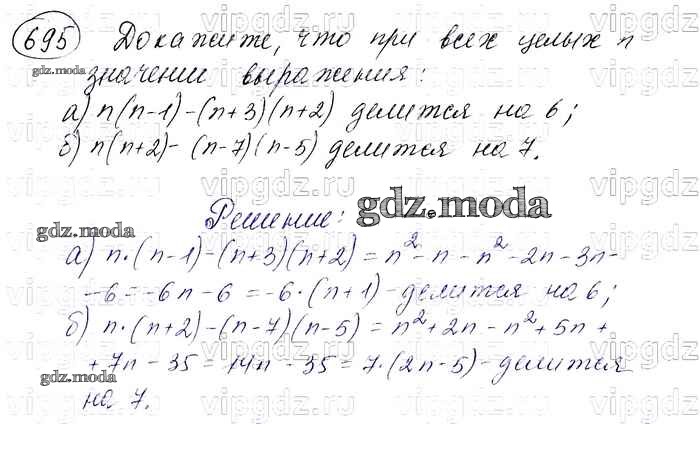 695 Докажите, что при всех целых n
gdz.moda
значении выражения:
а) n(n-1)-(n+3)(n+2) делится на 6;
б) n(n+2)-(n-7)(n-5) делится на 7.
gdz.moda
Решение:
gdz.moda
а) n·(n-1)-(n+3)(n+2)=n²-n-n²-2n-3n-
-6=-6n-6=-6·(n+1)-делится на 6;
б) n·(n+2)-(n-7)(n-5)=n²+2n-n²+5n+
+7n-35=14n-35=7·(2n-5)-делится
gdz.moda
на 7.